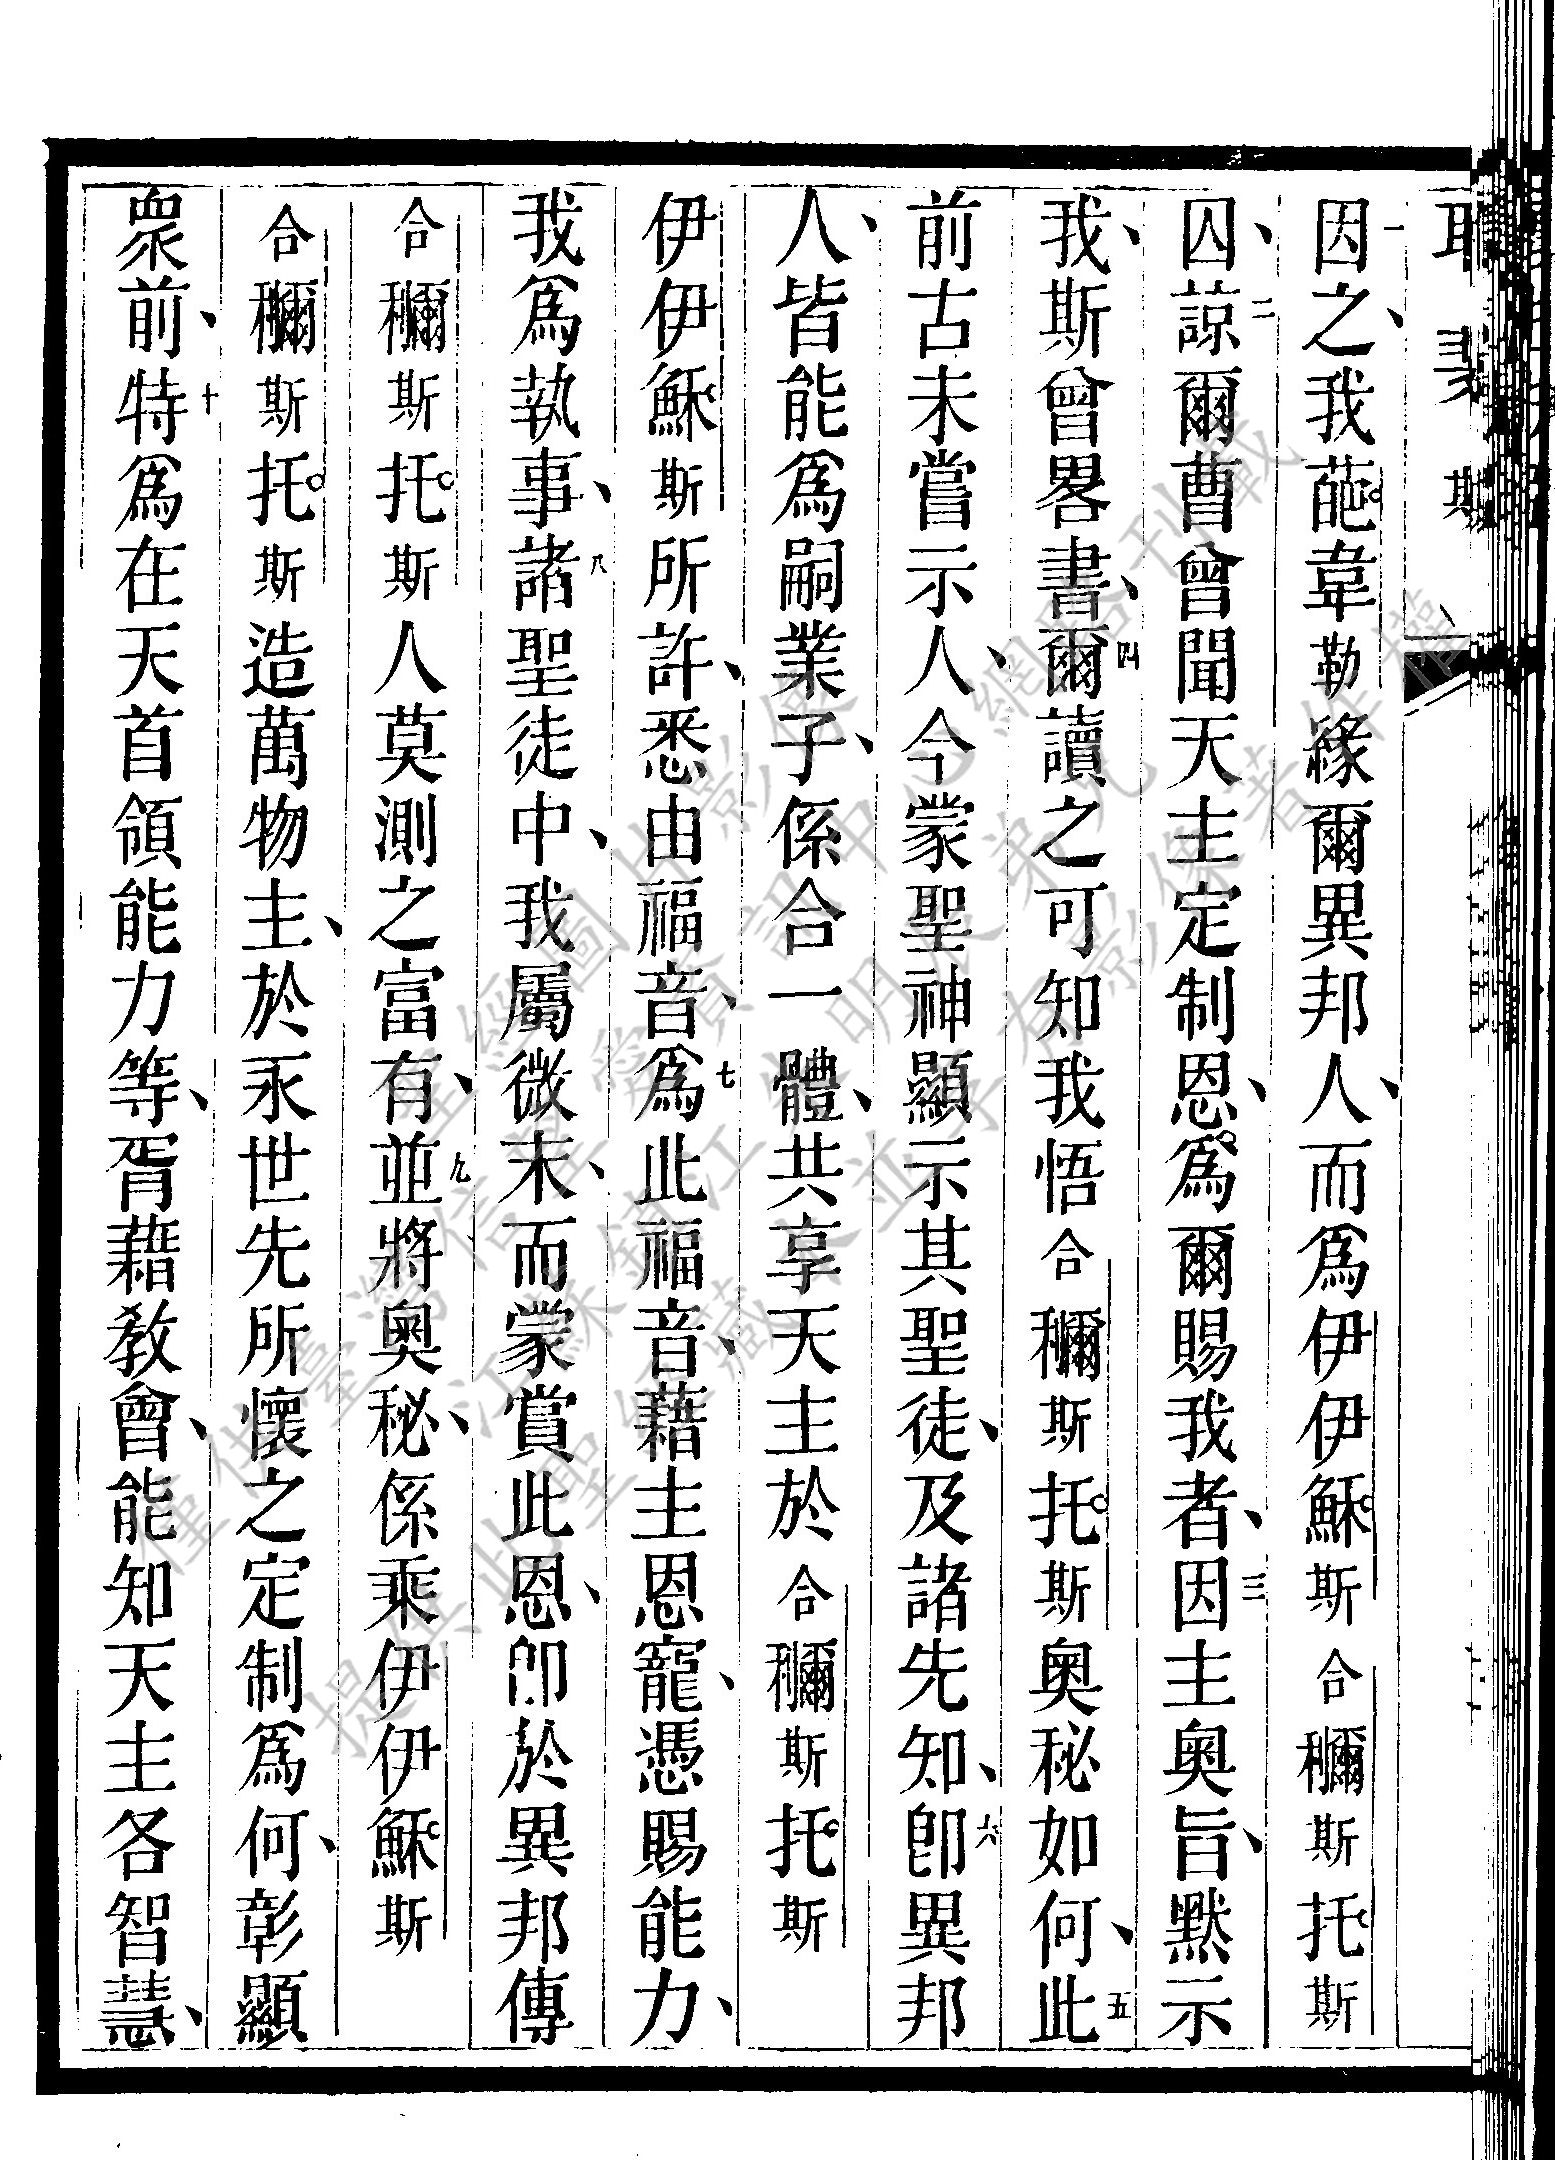 一因之、我葩韋勒緣爾異邦人、而爲伊伊穌斯合穪斯托斯
囚、二諒爾曹曾聞天主定制恩、爲爾賜我者、三因主奧旨、默示
我、斯曾畧書、四爾讀之可知我悟合穪斯托斯奧秘如何、五此
前古未嘗示人、今蒙聖神顯示其聖徒、及諸先知、六卽異邦
人、皆能爲嗣業子、係合一體、共享天主於合穪斯托斯
伊伊穌斯所許、悉由福音、七爲此福音、藉主恩寵、憑賜能力、
我爲執事、八諸聖徒中、我屬微末、而蒙賞此恩、卽於異邦傳
合穪斯托斯人莫測之富有、九並將奧秘、係乘伊伊穌斯
合穪斯托斯造萬物主、於永世先所懷之定制爲何、彰顯
衆前、十特爲在天首領能力等、胥藉敎會、能知天主各智慧、